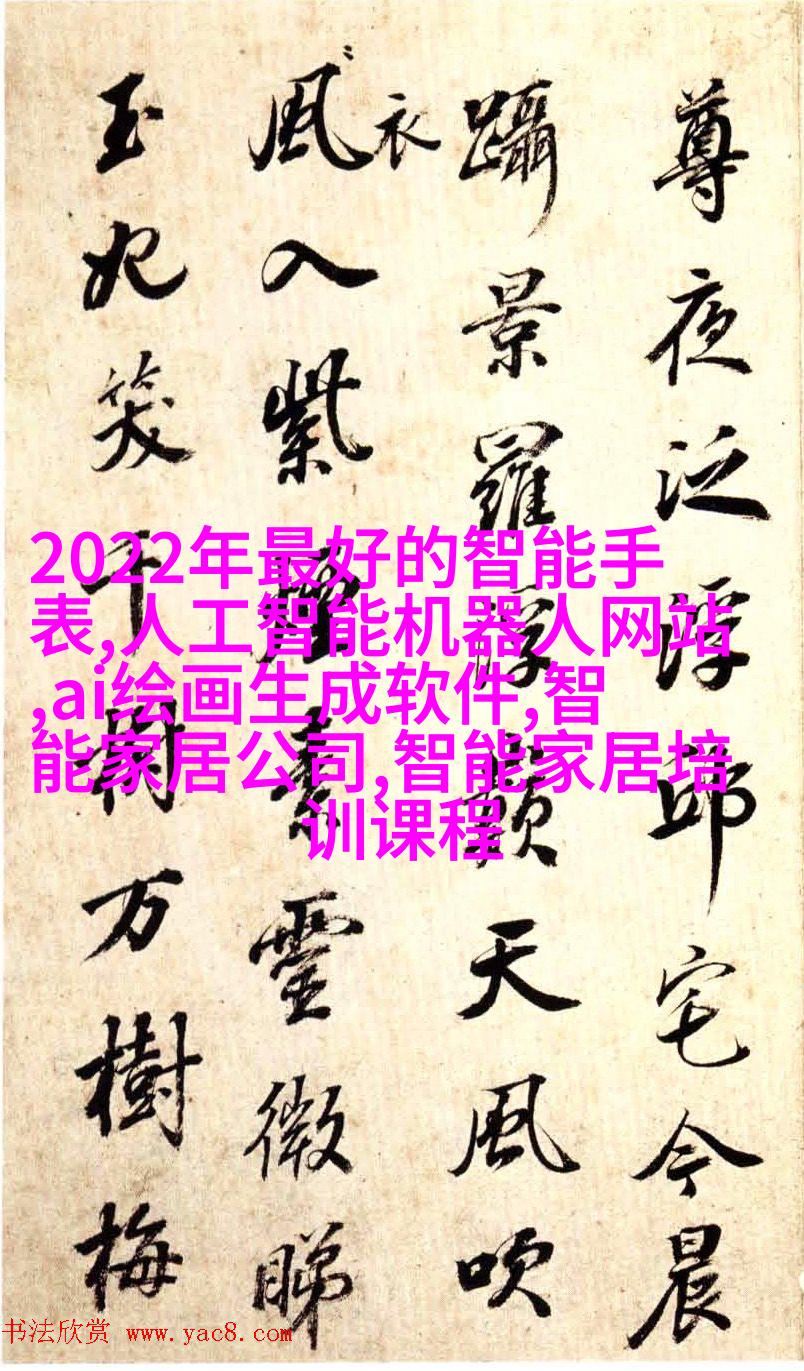 尊夜泛浮邱宅今晨
躡景羅浮天風吹
衣
風入紫素靈微睇
玉妃笑千樹万樹梅
2022年最好的智能手
表,人工智能机器人网站
,ai绘画生成软件,智
能家居公司,智能家居培
训课程
书法欣赏 www.yac8.com